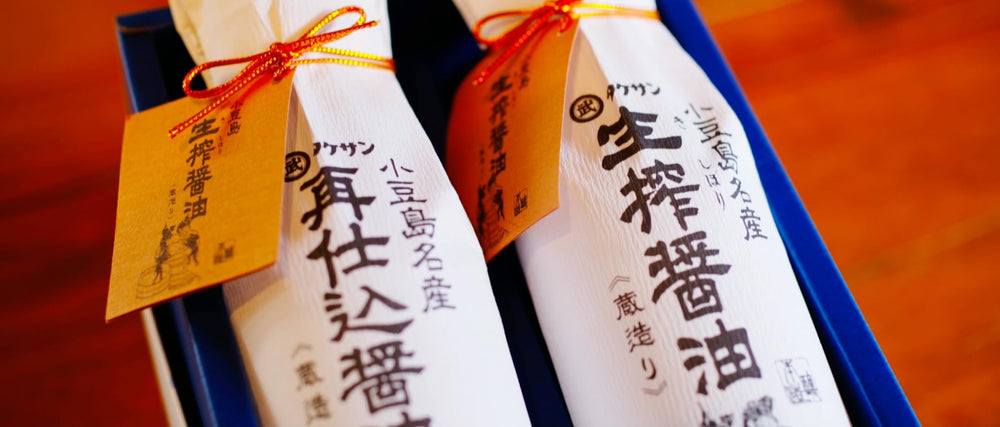 小豆島
生搾醤油
きしぼり
蔵造り
武
タケサン
小豆島名産
再仕込醤
《蔵造
生搾醤油
武
タケサン
小豆島名産
きしぼり
生搾醤油
《蔵造り》